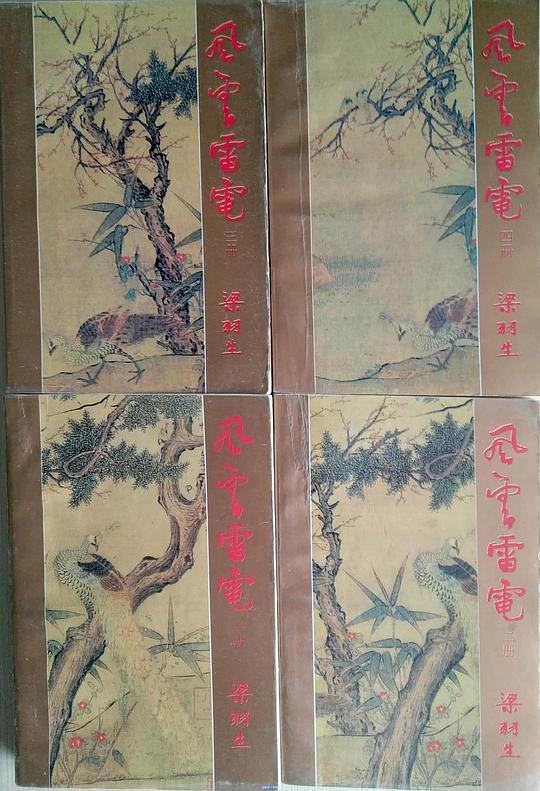 風雲雷電
三册
梁羽生
風雲雷電
四册
梁羽生
風雲雷電
册
梁羽生
風雲雷電
二册
梁羽生